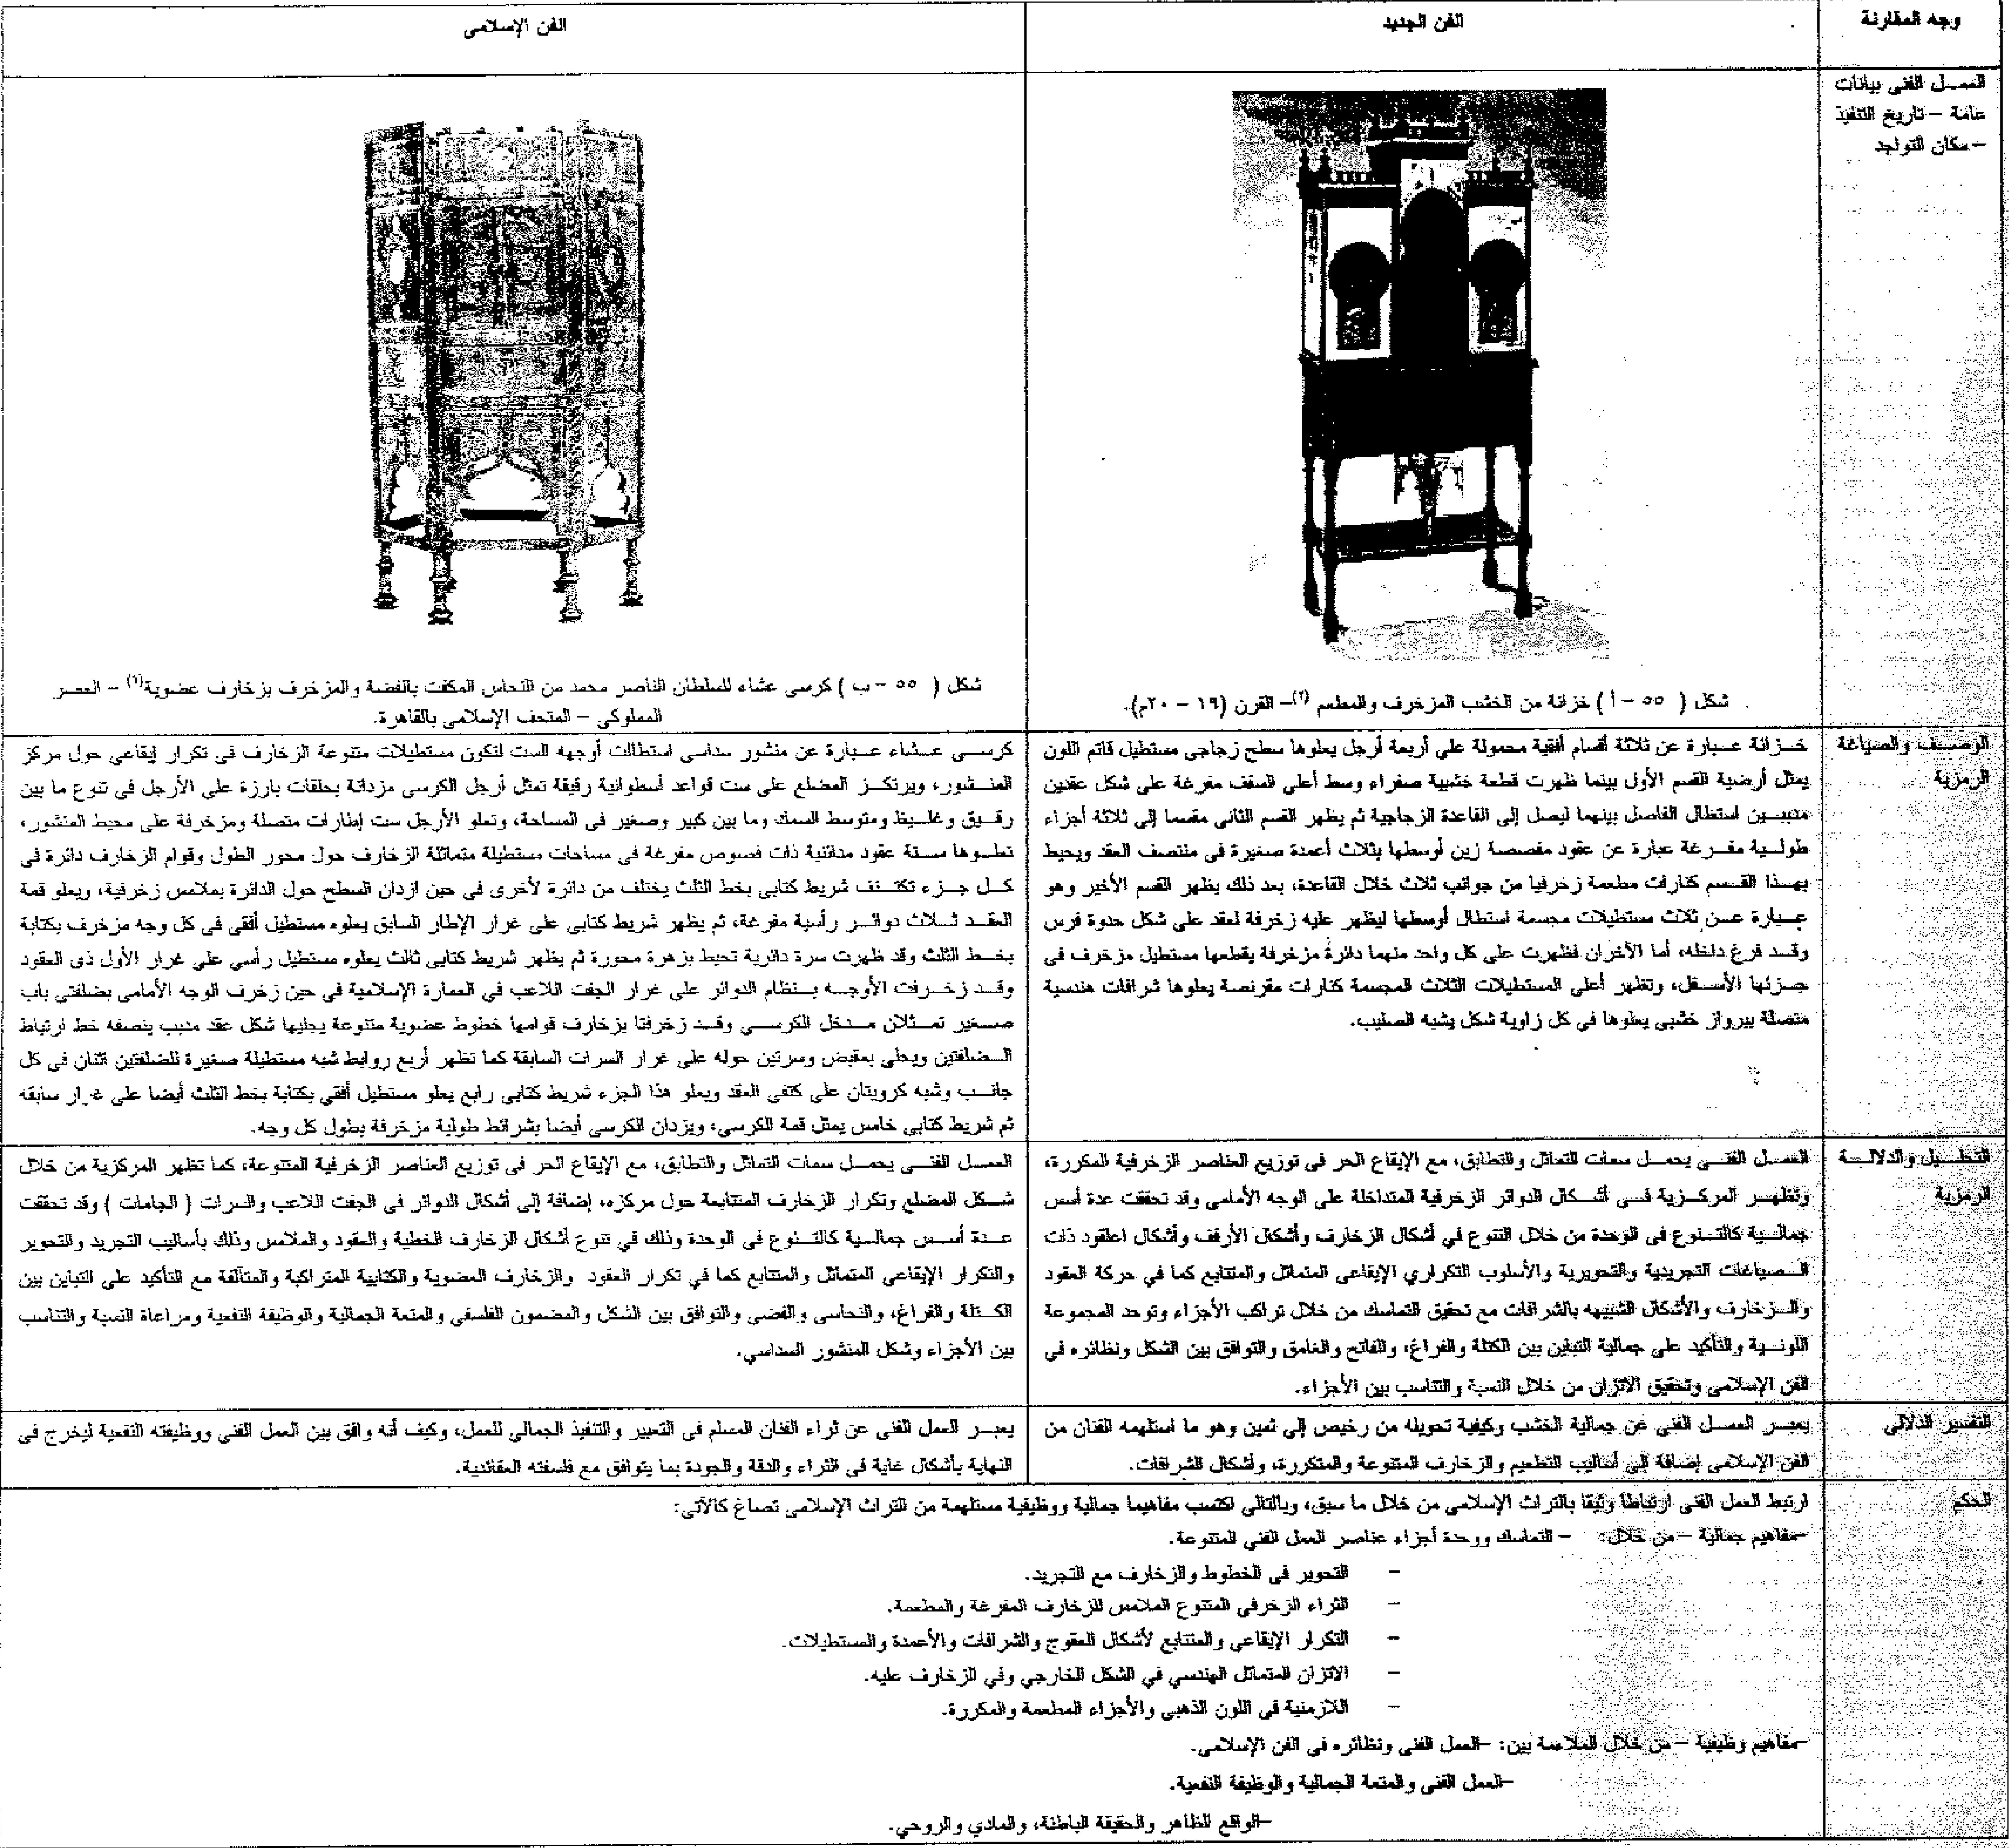 وجه المقارنة
الفن الجديد
الفن الإسلامى
العمـــل الفنى بيانات
عامة – تاريخ التنفيذ
– مكان التواجد
شكل ( ٥٥ – أ ) خزانة من الخشب المزخرف والمطعم (٢) – القرن (١٩ – ٢٠م).
شكل ( ٥٥ – ب ) كرسى عشاء للسلطان الناصر محمد من النحاس المكفت بالفضة والمزخرف بزخارف عضوية(١) – العصر
المملوكى – المتحف الإسلامى بالقاهرة.
الوصـــف والصياغة
الرمزية
خـــزانة عـــبارة عن ثلاثة أقسام أفقية محمولة على أربعة أرجل يعلوها سطح زجاجى مستطيل قاتم اللون
يمثل أرضية القسم الأول بينما ظهرت قطعة خشبية صفراء وسط أعلى السقف مفرغة على شكل عقدين
مدببـــين استطال الفاصل بينهما ليصل إلى القاعدة الزجاجية ثم يظهر القسم الثانى مقسما إلى ثلاثة أجزاء
طولـــية مفـــرغة عبارة عن عقود مفصصة زين أوسطها بثلاث أعمدة صغيرة فى منتصف العقد ويحيط
بهـــذا القـــسم كنارات مطعمة زخرفيا من جوانب ثلاث خلال القاعدة، بعد ذلك يظهر القسم الأخير وهو
عـــبارة عـــن ثلاث مستطيلات مجسمة استطال أوسطها ليظهر عليه زخرفة لعقد على شكل حدوة فرس
وقـــد فرغ داخله، أما الآخران فظهرت على كل واحد منهما دائرة مزخرفة يقطعها مستطيل مزخرف فى
جـــزئها الأســـفل، وتظهر أعلى المستطيلات الثلاث المجسمة كنارات مقرنصة يعلوها شرافات هندسية
متصلة ببرواز خشبى يعلوها فى كل زاوية شكل يشبه الصليب.
كرســـى عـــشاء عـــبارة عن منشور سداسى استطالت أوجهه الست لتكون مستطيلات متنوعة الزخارف فى تكرار إيقاعى حول مركز
المنـــشور، ويرتكـــز المضلع على ست قواعد أسطوانية رقيقة تمثل أرجل الكرسى مزدانة بحلقات بارزة على الأرجل فى تنوع ما بين
رقـــيق وغلـــيظ ومتوسط السمك وما بين كبير وصغير فى المساحة، وتعلو الأرجل ست إطارات متصلة ومزخرفة على محيط المنشور،
تعلـــوها ســـتة عقود مدائنية ذات فصوص مفرغة فى مساحات مستطيلة متماثلة الزخارف حول محور الطول وقوام الزخارف دائرة فى
كـــل جـــزء تكتـــنف شريط كتابى بخط الثلث يختلف من دائرة لأخرى فى حين ازدان السطح حول الدائرة بملامس زخرفية، ويعلو قمة
العقـــد ثـــلاث دوائـــر رأسية مفرغة، ثم يظهر شريط كتابى على غرار الإطار السابق يعلوه مستطيل أفقى فى كل وجه مزخرف بكتابة
بخـــط الثلث وقد ظهرت سرة دائرية تحيط بزهرة محورة ثم يظهر شريط كتابى ثالث يعلوه مستطيل رأسي على غرار الأول ذى العقود
وقـــد زخـــرفت الأوجـــه بـــنظام الدوائر على غرار الجفت اللاعب فى العمارة الإسلامية فى حين زخرف الوجه الأمامى بضلفتى باب
صـــغير تمـــثلان مـــدخل الكرســـي وقـــد زخرفتا بزخارف قوامها خطوط عضوية متنوعة يجليها شكل عقد مدبب ينصفه خط ارتباط
الـــضلفتين ويحلى بمقبض وسرتين حوله على غرار السرات السابقة كما تظهر أربع روابط شبه مستطيلة صغيرة للضلفتين اثنان فى كل
جانـــب وشبه كرويتان على كتفى العقد ويعلو هذا الجزء شريط كتابى رابع يعلو مستطيل أفقي بكتابة بخط الثلث أيضا على غرار سابقه
ثم شريط كتابى خامس يمثل قمة الكرسى، ويزدان الكرسى أيضا بشرائط طولية مزخرفة بطول كل وجه.
التحلـــيل والدلالـــة
الرمزية
العمـــل الفنـــى يحمـــل سمات التماثل والتطابق، مع الإيقاع الحر فى توزيع العناصر الزخرفية المكررة،
وتظهـــر المركـــزية فـــى أشـــكال الدوائر الزخرفية المتداخلة على الوجه الأمامى وقد تحققت عدة أسس
جمالـــية كالتـــنوع فى الوحدة من خلال التنوع في أشكال الزخارف وأشكال الأرفف وأشكال اعلقود ذات
الـــصياغات التجريدية والتحويرية والأسلوب التكراري الإيقاعى المتماثل والمتتابع كما في حركة العقود
والـــزخارف والأشكال الشبيهه بالشرافات مع تحقيق التماسك من خلال تراكب الأجزاء وتوحد المجموعة
اللونـــية والتأكيد على جمالية التباين بين الكتلة والفراغ، والفاتح والغامق والتوافق بين الشكل ونظائره فى
الفن الإسلامى وتحقيق الاتزان من خلال النسبة والتناسب بين الأجزاء.
العمـــل الفنـــى يحمـــل سمات التماثل والتطابق، مع الإيقاع الحر فى توزيع العناصر الزخرفية المتنوعة، كما تظهر المركزية من خلال
شـــكل المضلع وتكرار الزخارف المتتابعة حول مركزه، إضافة إلى أشكال الدوائر فى الجفت اللاعب والسرات ( الجامات ) وقد تحققت
عـــدة أســـس جمالـــية كالتـــنوع فى الوحدة وذلك في تنوع أشكال الزخارف الخطية والعقود والملامس وذلك بأساليب التجريد والتحوير
والتكرار الإيقاعى المتماثل والمتتابع كما في تكرار العقود والزخارف العضوية والكتابية المتراكبة والمتآلفة مع التأكيد على التباين بين
الكـــتلة والفراغ، والنحاسى والفضى والتوافق بين الشكل والمضمون الفلسفى والمتعة الجمالية والوظيفة النفعية ومراعاة النسبة والتناسب
بين الأجزاء وشكل المنشور السداسي.
التفسير الدلالى
يعبـــر العمـــل الفنى عن جمالية الخشب وكيفية تحويله من رخيص إلى ثمين وهو ما استلهمه الفنان من
الفن الإسلامى إضافة إلى أساليب التطعيم والزخارف المتنوعة والمتكررة، وأشكال الشرافات.
يعبـــر العمل الفنى عن ثراء الفنان المسلم فى التعبير والتنفيذ الجمالى للعمل، وكيف أنه وافق بين العمل الفنى ووظيفته النفعية ليخرج فى
النهاية بأشكال غاية فى الثراء والدقة والجودة بما يتوافق مع فلسفته العقائدية.
الحكم
ارتبط العمل الفنى ارتباطا وثيقا بالتراث الإسلامى من خلال ما سبق، وبالتالى اكتسب مفاهيما جمالية ووظيفية مستلهمة من التراث الإسلامى تصاغ كالآتى:
–مفاهيم جمالية – من خلال: – التماسك ووحدة أجزاء عناصر العمل الفنى المتنوعة.
– التحوير فى الخطوط والزخارف مع التجريد.
– الثراء الزخرفى المتنوع الملامس للزخارف المفرغة والمطعمة.
– التكرار الإيقاعى والمتتابع لأشكال العقوج والشرافات والأعمدة والمستطيلات.
– الاتزان المتماثل الهندسي في الشكل الخارجي وفي الزخارف عليه.
– اللازمنية فى اللون الذهبى والأجزاء المطعمة والمكررة.
–مفاهيم وظيفية – من خلال الملاءمة بين: –العمل الفنى ونظائره فى الفن الإسلامى.
–العمل الفنى والمتعة الجمالية والوظيفة النفعية.
–الواقع الظاهر والحقيقة الباطنة، والمادي والروحي.